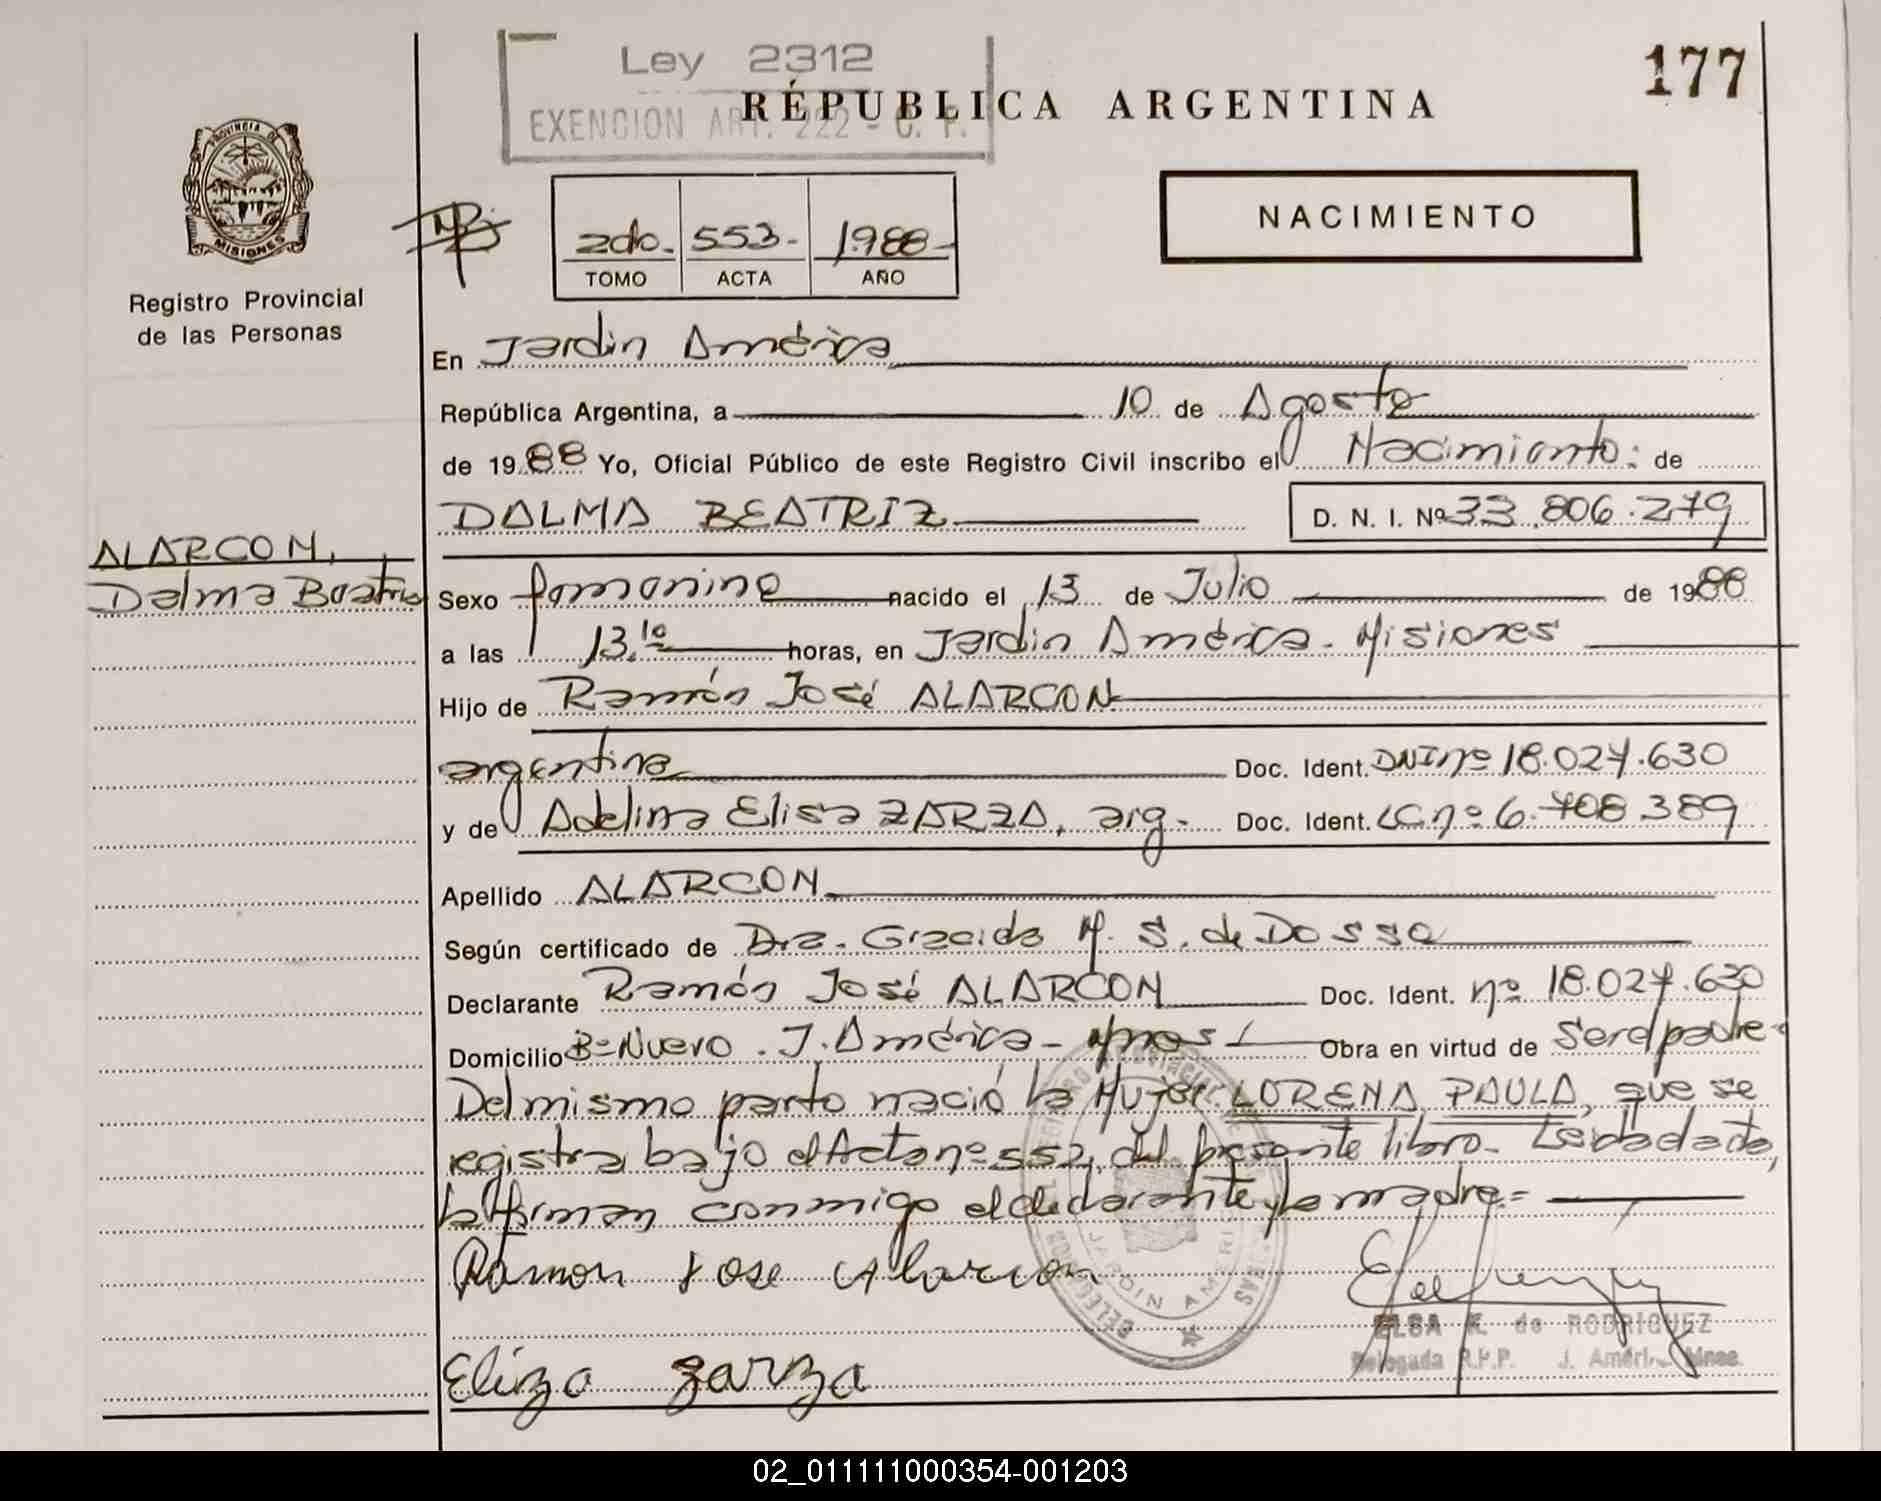 Ley 2312
EXENCION ART. 222 - C. F.
177
RÉPUBLICA ARGENTINA
PROVINCIA DE
MISIONES
Registro Provincial
de las Personas
2do. 553- 1.988-
TOMO ACTA AÑO
NACIMIENTO
En Jardín América
República Argentina, a 10 de Agosto
de 1988 Yo, Oficial Público de este Registro Civil inscribo el Nacimiento: de
DALMA BEATRIZ D. N. I. Nº 33.806.279
ALARCON,
Dalma Beatriz
Sexo femenino nacido el 13 de Julio de 1988
a las 13.10 horas, en Jardín América - Misiones
Hijo de Ramón José ALARCON
argentina Doc. Ident. DNI nº 18.027.630
y de Adelina Elisa ZARZA, arg. Doc. Ident. LC nº 6.708.389
Apellido ALARCON
Según certificado de Dra. Graciela M. S. de Dossa
Declarante Ramón José ALARCON Doc. Ident. nº 18.027.630
Domicilio Bº Nuevo . J. América - Mnes Obra en virtud de Ser el padre-
Del mismo parto nació la Mujer LORENA PAULA, que se
registra bajo el Acta nº 552, del presente libro- Leida el acta,
la firman conmigo el declarante y la madre=
Ramon Jose Alarcon
Eliza Zarza
ELSA K. de RODRIGUEZ
Delegada R.P.P. J. América Mnes.
DELEGACION
JARDIN AMERICA
02_011111000354-001203